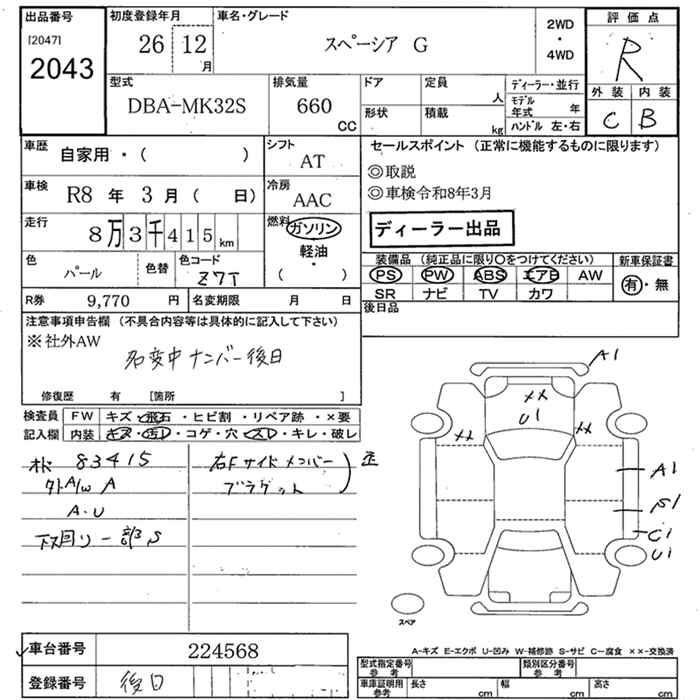 出品番号
[2047]
2043
初度登録年月
26 12
月
車名・グレード
スペーシア G
2WD
・
4WD
評価点
R
外装 内装
C B
型式
DBA-MK32S
排気量
660
CC
ドア
定員
人
形状
積載
kg
ディーラー・並行
モデル年式 年
ハンドル 左・右
車歴
自家用・( )
シフト
AT
車検
R8 年 3月( 日)
冷房
AAC
走行
8万3千415km
燃料
ガソリン
・
軽油
・
( )
色
パール
色替
色コード
Z7T
R券 9,770 円
名変期限 月 日
セールスポイント (正常に機能するものに限ります)
◎取説
◎車検令和8年3月
ディーラー出品
装備品 (純正品に限り○をつけてください)
新車保証書
PS PW ABS エアB AW
有・無
SR ナビ TV カワ
後日品
注意事項申告欄 (不具合内容等は具体的に記入して下さい)
※社外AW
名変中ナンバー後日
修復歴 有 [箇所 ]
検査員
記入欄
FW キズ・飛石・ヒビ割・リペア跡・×要
内装 キズ・汚レ・コゲ・穴・スレ・キレ・破レ
83415
外A/W A
A・U
下回リ一部S
右Fサイドメンバー
ブラケット
歪
A1
××
U1
××
××
A1
S1
C1
U1
スペア
A-キズ E-エクボ U-凹み W-補修跡 S-サビ C-腐食 ××-交換済
車台番号 224568
登録番号 後日
型式指定番号
参考
類別区分番号
参考
車庫証明用
参考
長さ cm
幅 cm
高さ cm